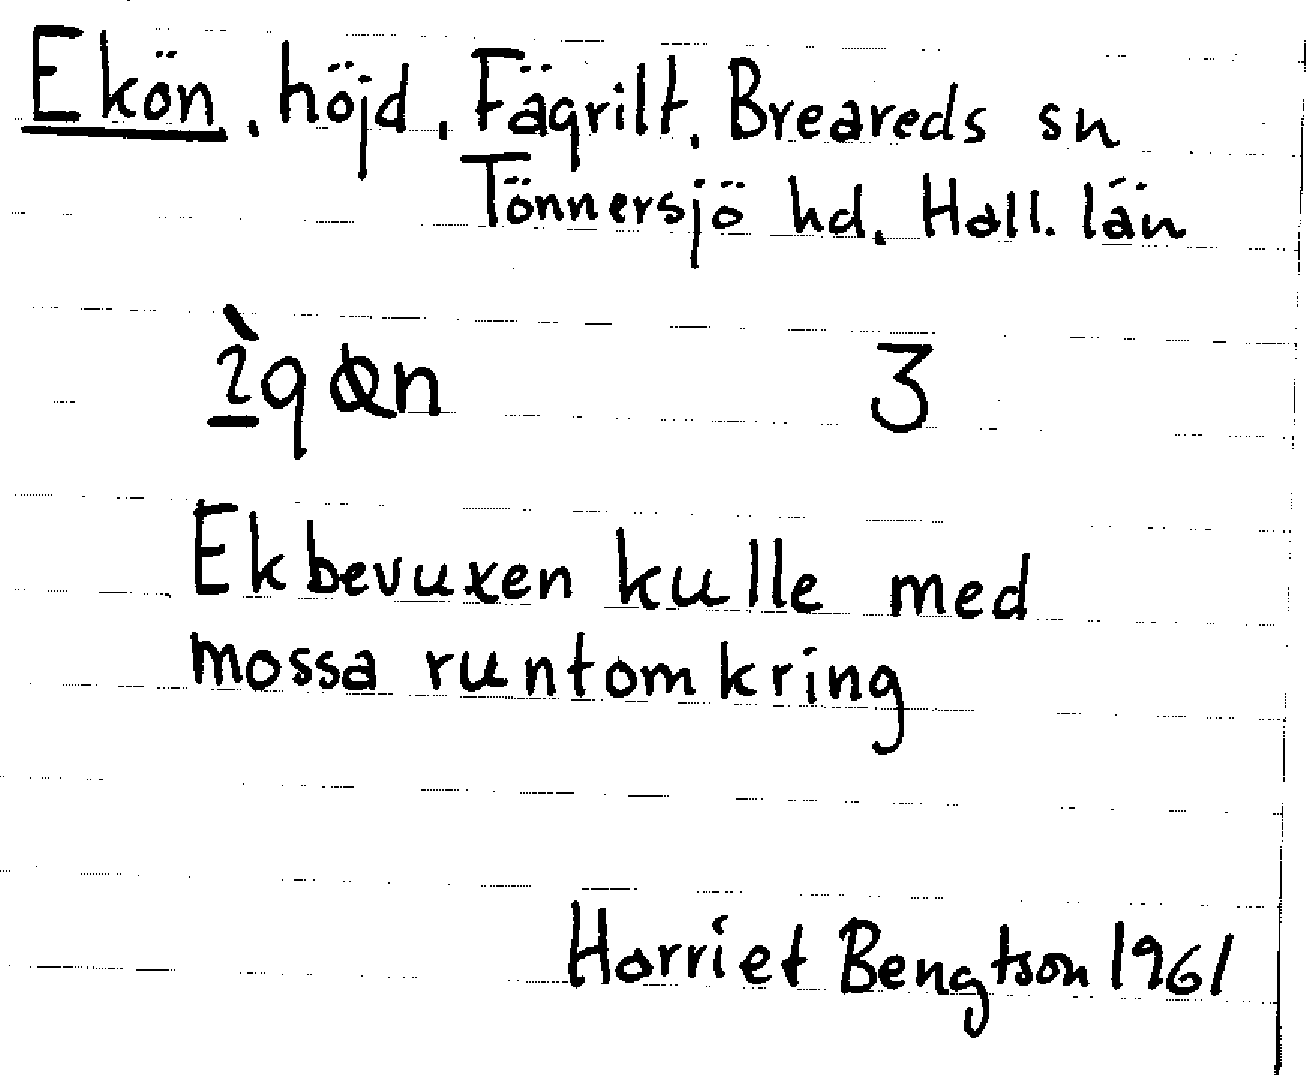 Ekön, höjd, Fägrilt, Breareds sn
Tönnersjö hd, Hall. län
3
Ekbevuxen kulle med
mossa runtomkring
Harriet Bengtson 1961